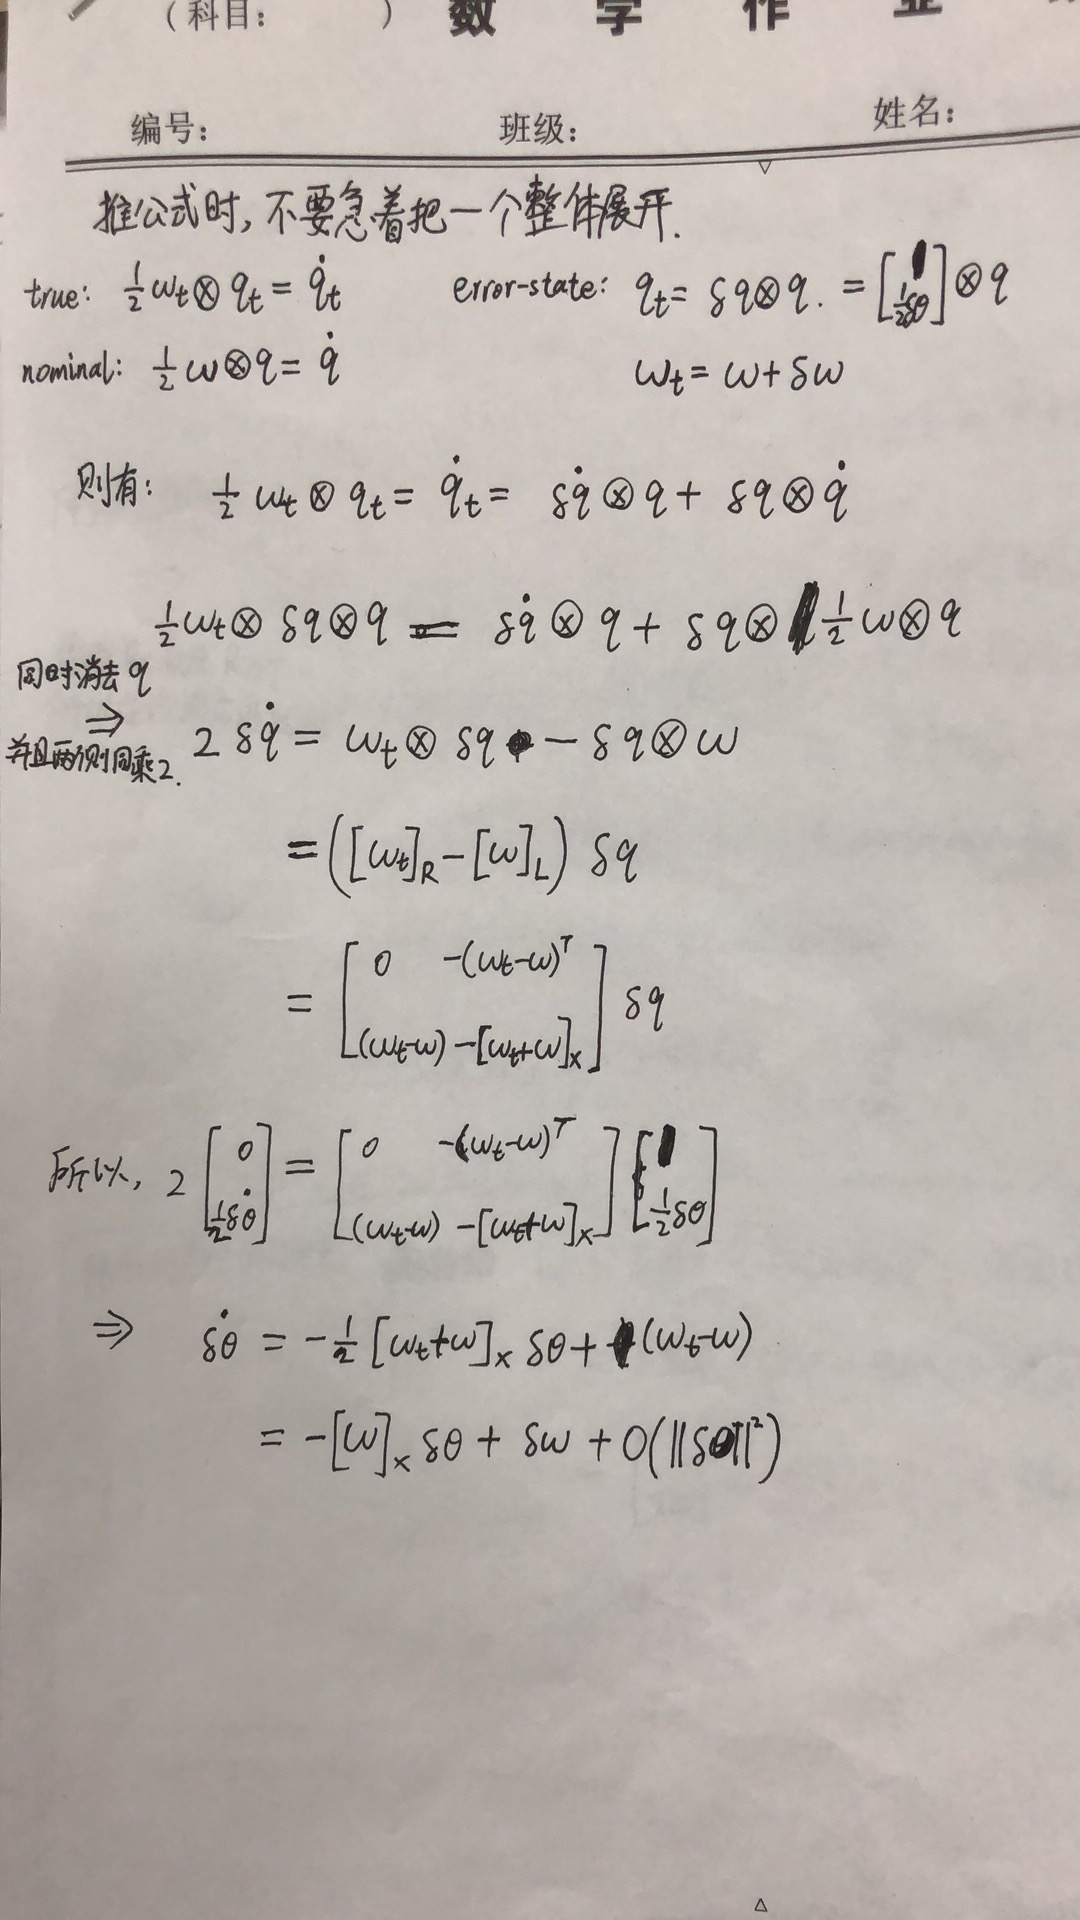 (科目: ) 数 学 作 业
编号: 班级: 姓名:
推公式时,不要急着把一个整体展开.
true: ½ ωt ⊗ qt = q̇t error-state: qt = δq ⊗ q. = [1; ½δθ] ⊗ q
nominal: ½ ω ⊗ q = q̇ ωt = ω + δω
则有: ½ ωt ⊗ qt = q̇t = δq̇ ⊗ q + δq ⊗ q̇
½ ωt ⊗ δq ⊗ q = δq̇ ⊗ q + δq ⊗ ½ ω ⊗ q
同时消去 q
⇒
并且两侧同乘2.
2 δq̇ = ωt ⊗ δq − δq ⊗ ω
= ([ωt]R − [ω]L) δq
= [0 −(ωt−ω)ᵀ; (ωt−ω) −[ωt+ω]×] δq
所以, 2 [0; ½δθ̇] = [0 −(ωt−ω)ᵀ; (ωt−ω) −[ωt+ω]×] [1; ½δθ]
⇒ δθ̇ = −½ [ωt+ω]× δθ + (ωt−ω)
= −[ω]× δθ + δω + O(||δθ||²)